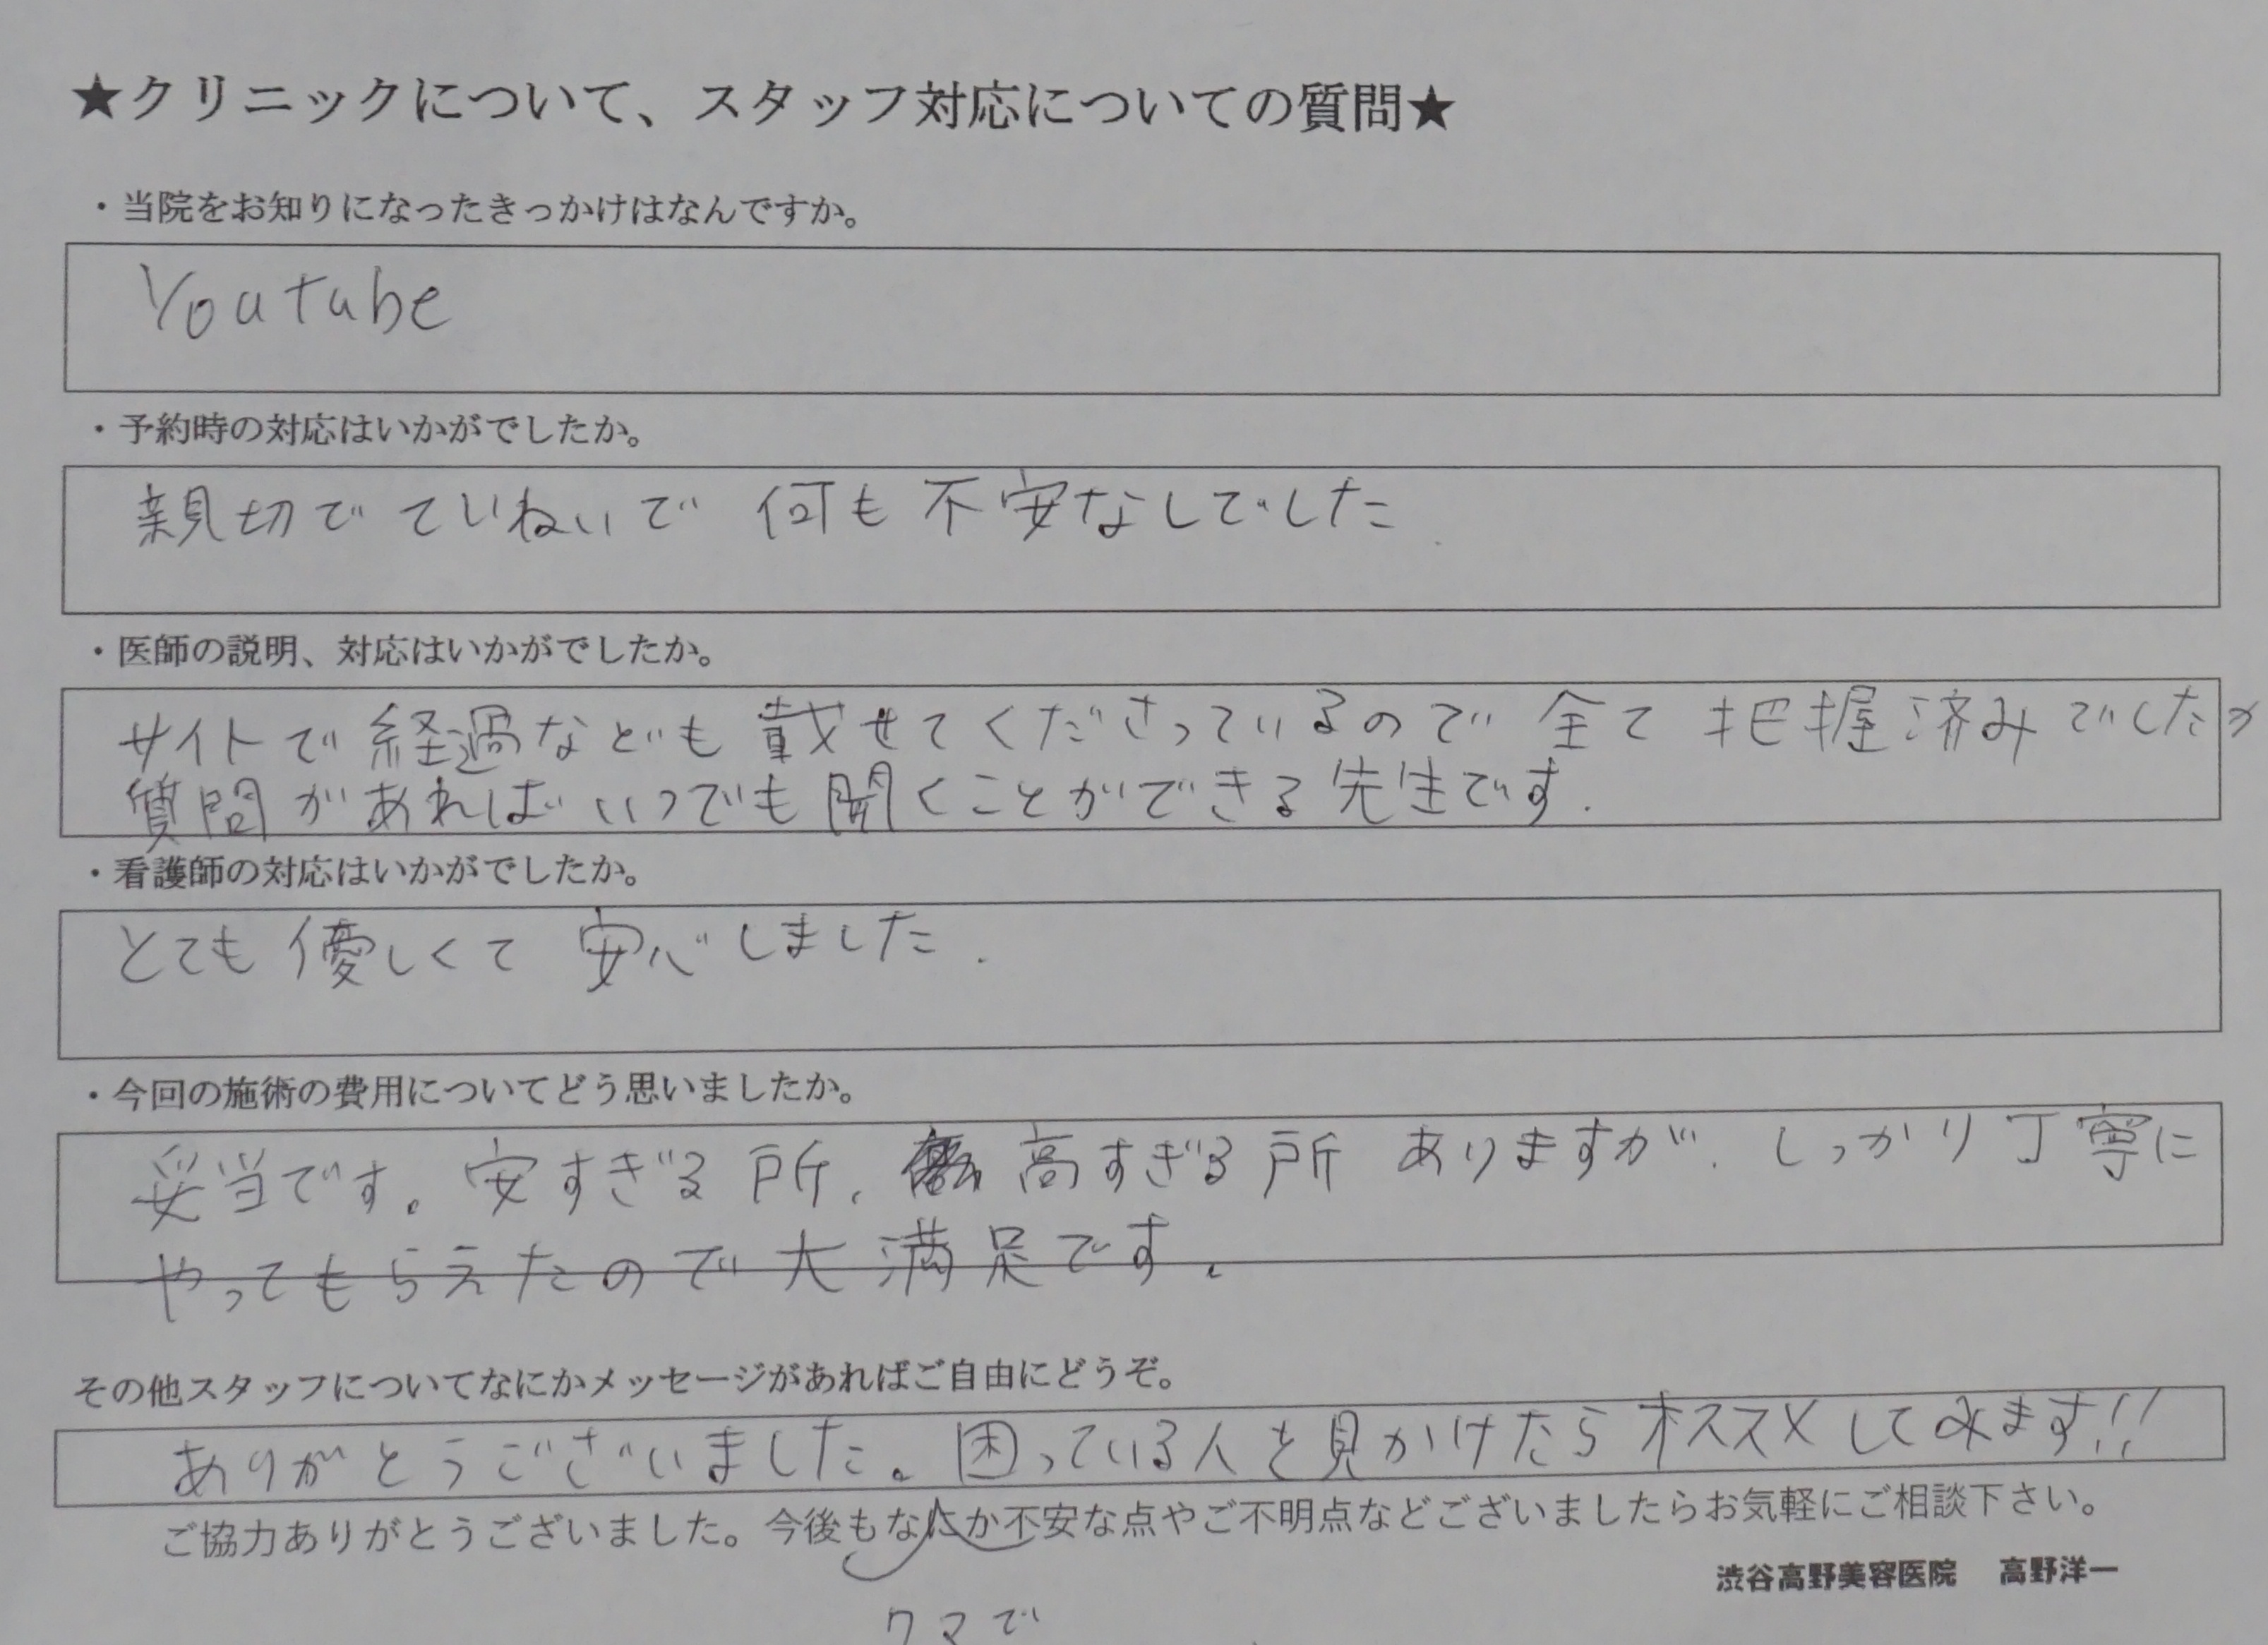 ★クリニックについて、スタッフ対応についての質問★
・当院をお知りになったきっかけはなんですか。
Youtube
・予約時の対応はいかがでしたか。
親切でていねいで何も不安なしでした.
・医師の説明、対応はいかがでしたか。
サイトで経過なども載せてくださっているので全て把握済みでしたが
質問があればいつでも聞くことができる先生です.
・看護師の対応はいかがでしたか。
とても優しくて安心しました.
・今回の施術の費用についてどう思いましたか。
妥当です。安すぎる所、高すぎる所ありますが、しっかり丁寧に
やってもらえたので大満足です.
その他スタッフについてなにかメッセージがあればご自由にどうぞ。
ありがとうございました。困っている人を見かけたらオススメしてみます!!
ご協力ありがとうございました。今後もなにか不安な点やご不明点などございましたらお気軽にご相談下さい。
渋谷高野美容医院 高野洋一
クマで